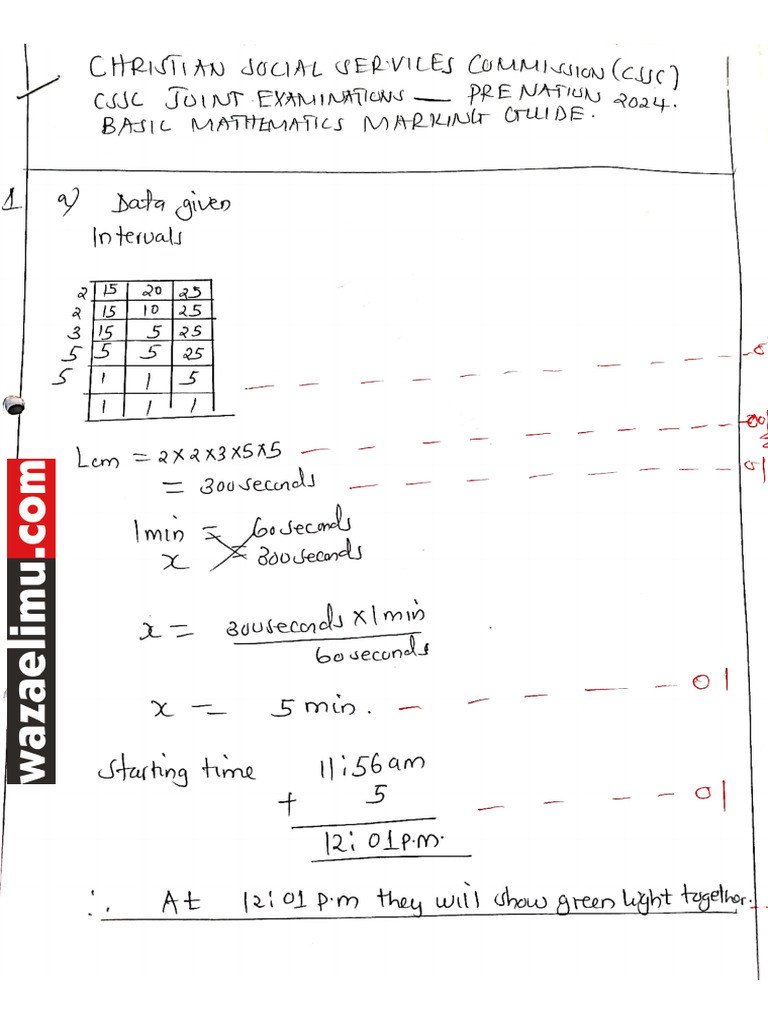 CHRISTIAN SOCIAL SERVICES COMMISSION (CSSC)
CSSC JOINT EXAMINATIONS — PRE NATION 2024.
BASIC MATHEMATICS MARKING GUIDE.
1 a) Data given
Intervals
2 15 20 25
2 15 10 25
3 15 5 25
5 5 5 25
5 1 1 5
1 1 1
Lcm = 2×2×3×5×5
= 300 seconds 01
1 min = 60 seconds
x = 300 seconds
x = 300 seconds × 1 min
60 seconds
x = 5 min. 01
starting time 11:56 am
+ 5 01
12:01 p.m.
∴ At 12:01 p.m they will show green light together.
wazaelimu.com